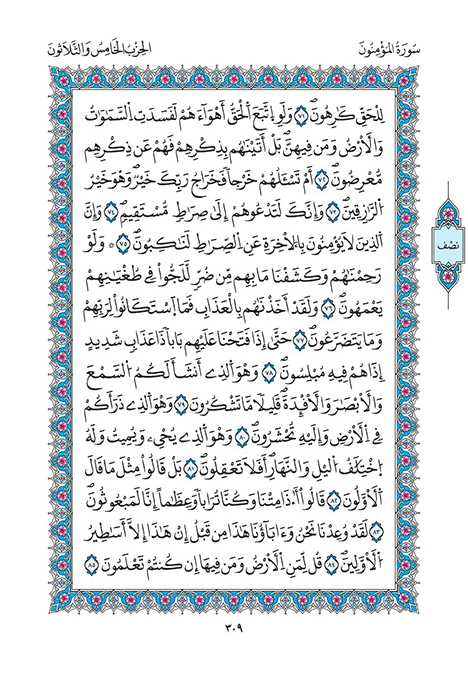 سُورَةُ المُؤْمِنُونَ
الحِزْبُ الخَامِسُ وَالثَّلَاثُونَ
لِلْحَقِّ كَٰرِهُونَۖ ٧١ وَلَوِ اِ۪تَّبَعَ اَ۬لْحَقُّ أَهْوَآءَهُمْ لَفَسَدَتِ اِ۬لسَّمَٰوَٰتُ
وَالْأَرْضُ وَمَن فِيهِنَّۖ بَلْ أَتَيْنَٰهُم بِذِكْرِهِمْ فَهُمْ عَن ذِكْرِهِم
مُّعْرِضُونَۖ ٧٢ أَمْ تَسْـَٔلُهُمْ خَرْجاٗ فَخَرَاجُ رَبِّكَ خَيْرٞۖ وَهْوَ خَيْرُ
اُ۬لرَّٰزِقِينَۖ ٧٣ وَإِنَّكَ لَتَدْعُوهُمْ إِلَىٰ صِرَٰطٖ مُّسْتَقِيمٖۖ ٧٤ وَإِنَّ
اَ۬لذِينَ لَا يُؤْمِنُونَ بِالْأٓخِرَةِ عَنِ اِ۬لصِّرَٰطِ لَنَٰكِبُونَۖ ٧٥ ۞ وَلَوْ
رَحِمْنَٰهُمْ وَكَشَفْنَا مَا بِهِم مِّن ضُرّٖ لَّلَجُّواْ فِے طُغْيَٰنِهِمْ
يَعْمَهُونَۖ ٧٦ وَلَقَدْ أَخَذْنَٰهُم بِالْعَذَابِ فَمَا اَ۪سْتَكَانُواْ لِرَبِّهِمْ
وَمَا يَتَضَرَّعُونَۖ ٧٧ حَتَّىٰ إِذَا فَتَحْنَا عَلَيْهِم بَاباٗ ذَا عَذَابٖ شَدِيدٍ
إِذَا هُمْ فِيهِ مُبْلِسُونَۖ ٧٨ وَهْوَ اَ۬لذِےٓ أَنشَأَ لَكُمُ اُ۬لسَّمْعَ
وَالْأَبْصَٰرَ وَالْأَفْـِٕدَةَۖ قَلِيلاٗ مَّا تَشْكُرُونَۖ ٧٩ وَهْوَ اَ۬لذِے ذَرَأَكُمْ
فِے اِ۬لْأَرْضِ وَإِلَيْهِ تُحْشَرُونَۖ ٨٠ وَهْوَ اَ۬لذِے يُحْيِۦ وَيُمِيتُ وَلَهُ
اُ۪خْتِلَٰفُ اُ۬ليْلِ وَالنَّهَارِۖ أَفَلَا تَعْقِلُونَۖ ٨١ بَلْ قَالُواْ مِثْلَ مَا قَالَ
اَ۬لْأَوَّلُونَۖ ٨٢ قَالُوٓاْ أَ.ٰذَا مِتْنَا وَكُنَّا تُرَاباٗ وَعِظَٰماً إِنَّا لَمَبْعُوثُونَۖ
٨٣ لَقَدْ وُعِدْنَا نَحْنُ وَءَابَآؤُنَا هَٰذَا مِن قَبْلُ إِنْ هَٰذَآ إِلَّآ أَسَٰطِيرُ
اُ۬لْأَوَّلِينَۖ ٨٤ قُل لِّمَنِ اِ۬لْأَرْضُ وَمَن فِيهَآ إِن كُنتُمْ تَعْلَمُونَ ٨٥
نصف
٣٠٩